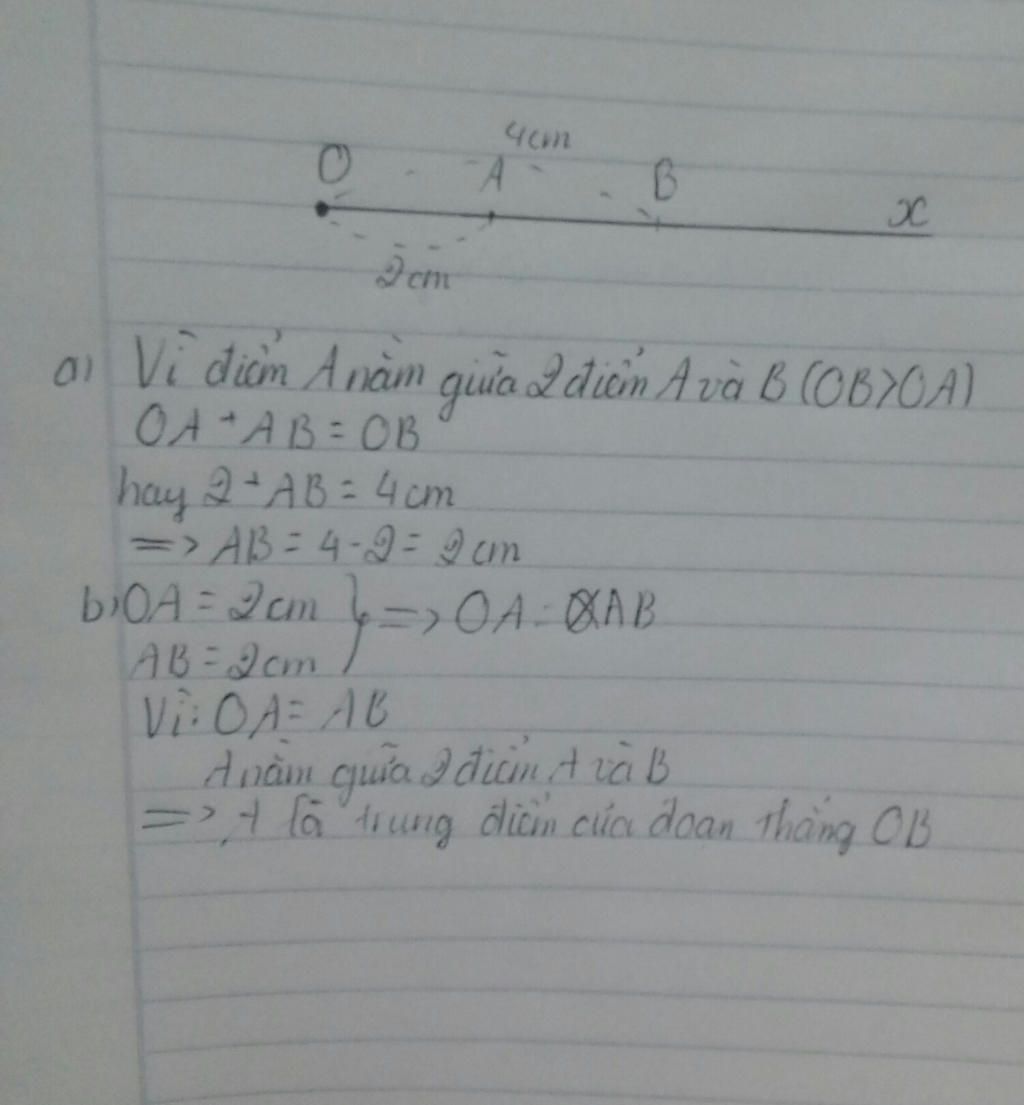 4cm
O A B x
2cm
a) Vì điểm A nằm giữa 2 điểm A và B (OB>OA)
OA + AB = OB
hay 2 + AB = 4cm
=> AB = 4 - 2 = 2cm
b) OA = 2cm } => OA = AB
AB = 2cm
Vì: OA = AB
A nằm giữa 2 điểm A và B
=> A là trung điểm của đoạn thẳng OB